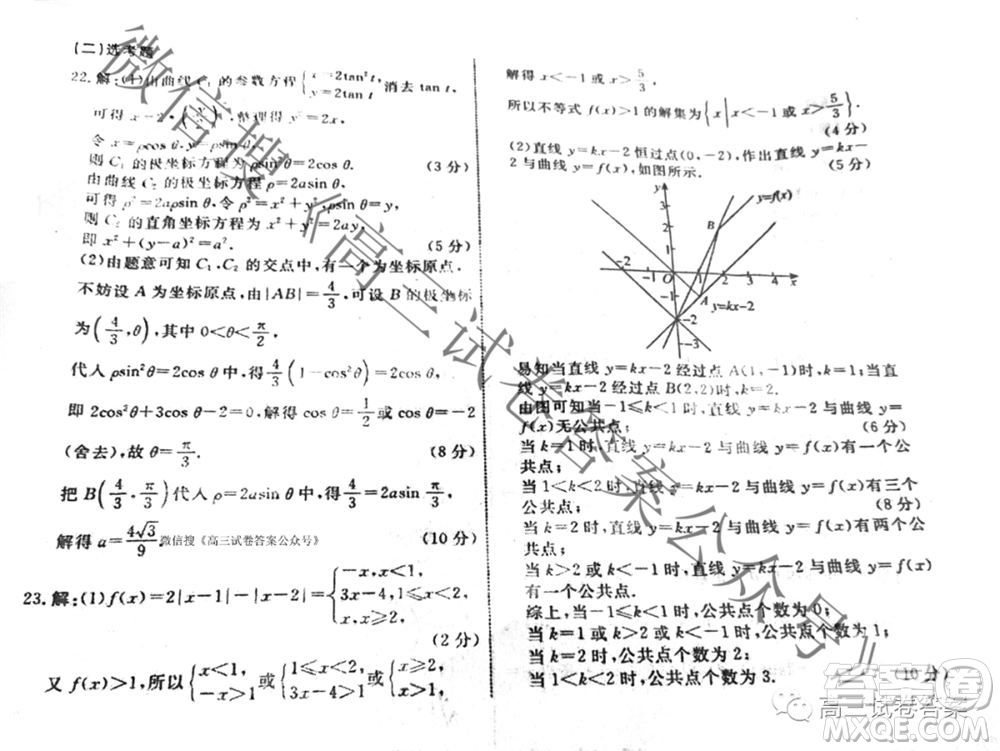 (二)选考题
22.解:(1)由曲线 C₁ 的参数方程{x=2tan²t, y=2tan t, 消去 tan t,
可得 x=2·(y/2)²,整理得
令 x=ρcos θ,
则 C₁ 的极坐标方程为 ρsin²θ=2cos θ. (3 分)
由曲线 C₂ 的极坐标方程 ρ=2asin θ,
可得 ρ²=2aρsin θ,令 ρ²=x²+y²,ρsin θ=y,
则 C₂ 的直角坐标方程为 x²+y²=2ay,
即 x²+(y-a)²=a². (5 分)
(2)由题意可知 C₁,C₂ 的交点中,有一个为坐标原点.
不妨设 A 为坐标原点,由|AB|=4/3,可设 B 的极坐标
为(4/3,θ),其中 0<θ<π/2.
代入 ρsin²θ=2cos θ 中,得 4/3(1-cos²θ)=2cos θ,
即 2cos²θ+3cos θ-2=0,解得 cos θ=1/2或 cos θ=-2
(舍去),故 θ=π/3. (8 分)
把 B(4/3,π/3)代入 ρ=2asin θ 中,得4/3=2asin π/3,
解得 a=4√3/9. 微信搜《高三试卷答案公众号》 (10 分)
23.解:(1)f(x)=2|x-1|-|x-2|={-x,x<1, 3x-4,1≤x
(2 分)
又 f(x)>1,所以{x<1, -x>1或{1≤x≤2, 3x-4>1或{x>2, x>1,
解得 x<-1 或 x>5/3.
所以不等式 f(x)>1 的解集为{x|x<-1 或 x>5/3}.
(4 分)
(2)直线 y=kx-2 恒过点(0,-2),作出直线 y=kx-
2 与曲线 y=f(x),如图所示. (5 分)
y
y=f(x)
3
2
B
1
-2 -1 O 1 2 3 4 x
-1
A
y=kx-2
-2
-3
易知当直线 y=kx-2 经过点 A(1,-1)时,k=1;当直
线 y=kx-2 经过点 B(2,2)时,k=2.
由图可知当-1≤k<1 时,直线 y=kx-2 与曲线 y=
f(x)无公共点; (6 分)
当 k=1 时,直线 y=kx-2 与曲线 y=f(x)有一个公
共点;
当 1<k<2 时,直线 y=kx-2 与曲线 y=f(x)有三个
公共点; (8 分)
当 k=2 时,直线 y=kx-2 与曲线 y=f(x)有两个公
共点;
当 k<-1 或 k>2 时,直线 y=kx-2 与曲线 y=f(x)
有一个公共点.
综上,当-1≤k<1 时,公共点个数为 0;
当 k=1 或 k>2 或 k<-1 时,公共点个数为 1;
当 k=2 时,公共点个数为 2;
当 1<k<2 时,公共点个数为 3. (10 分)
微信搜《高三试卷答案公众号》
高三试卷答案